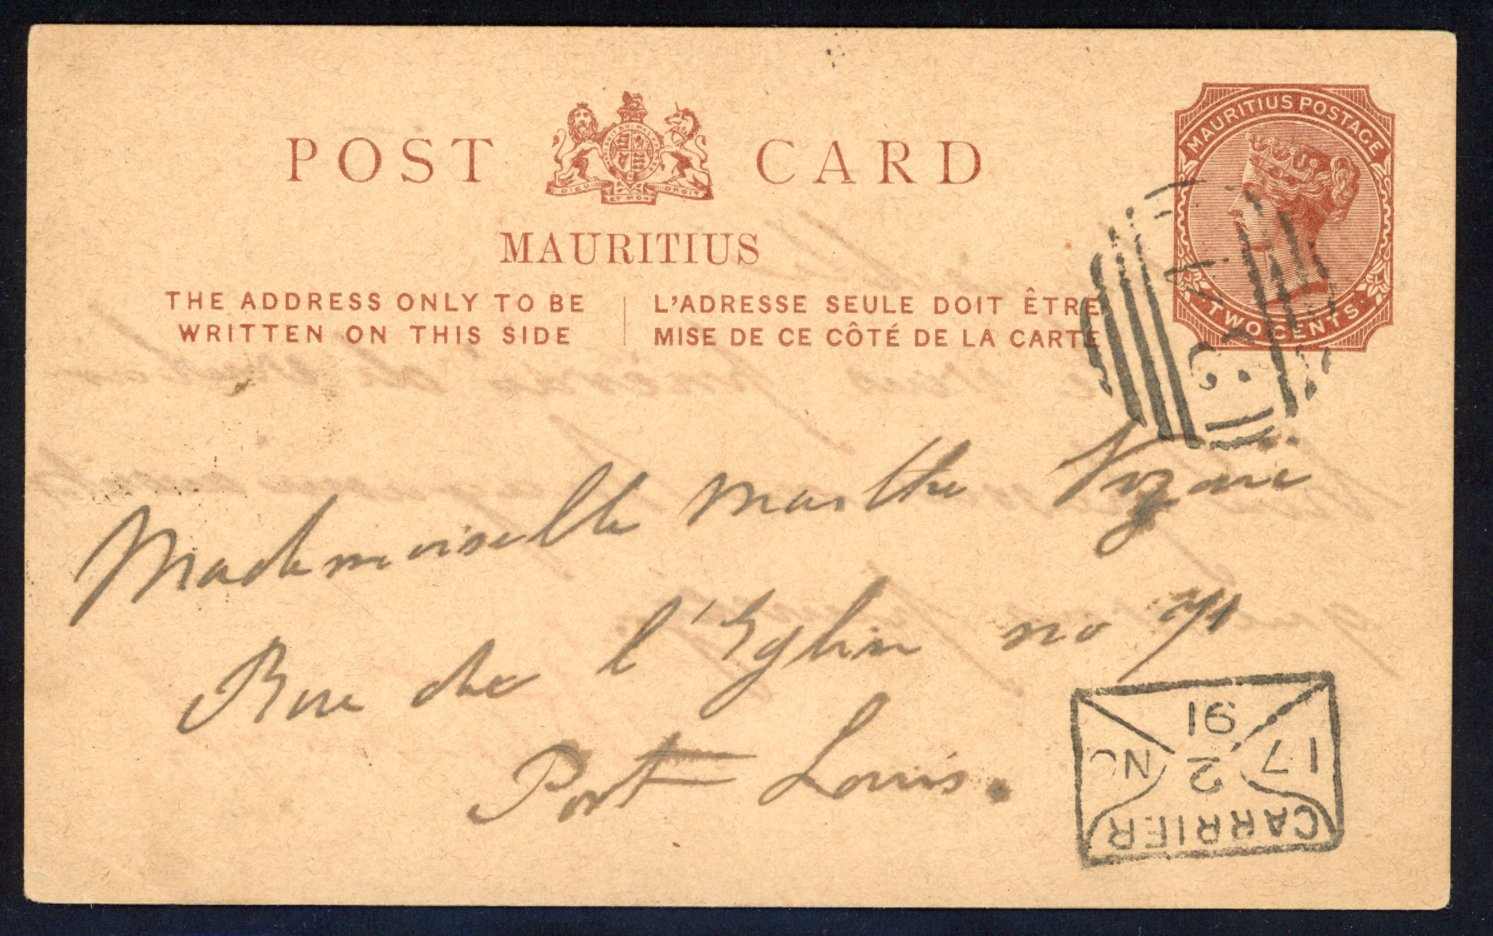 POST CARD
DIEU ET MON DROIT
MAURITIUS
THE ADDRESS ONLY TO BE WRITTEN ON THIS SIDE
L'ADRESSE SEULE DOIT ÊTRE MISE DE CE CÔTÉ DE LA CARTE
MAURITIUS POSTAGE
TWO CENTS
Mademoiselle Marthe
Rue de l'Eglise no 71
Port Louis.
CARRIER
17 2 NO
91